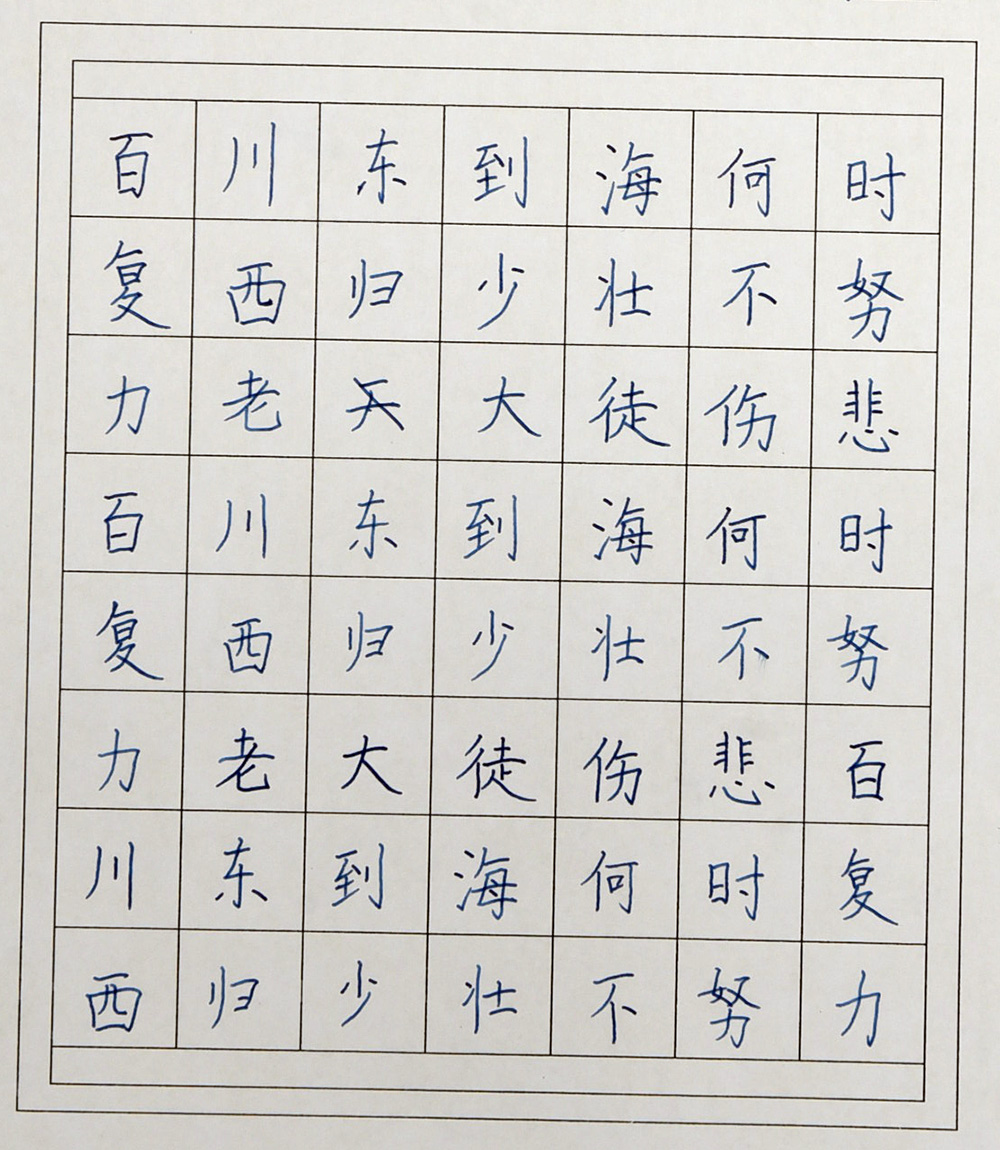 百川东到海何时
复西归少壮不努
力老大徒伤悲
百川东到海何时
复西归少壮不努
力老大徒伤悲百
川东到海何时复
西归少壮不努力